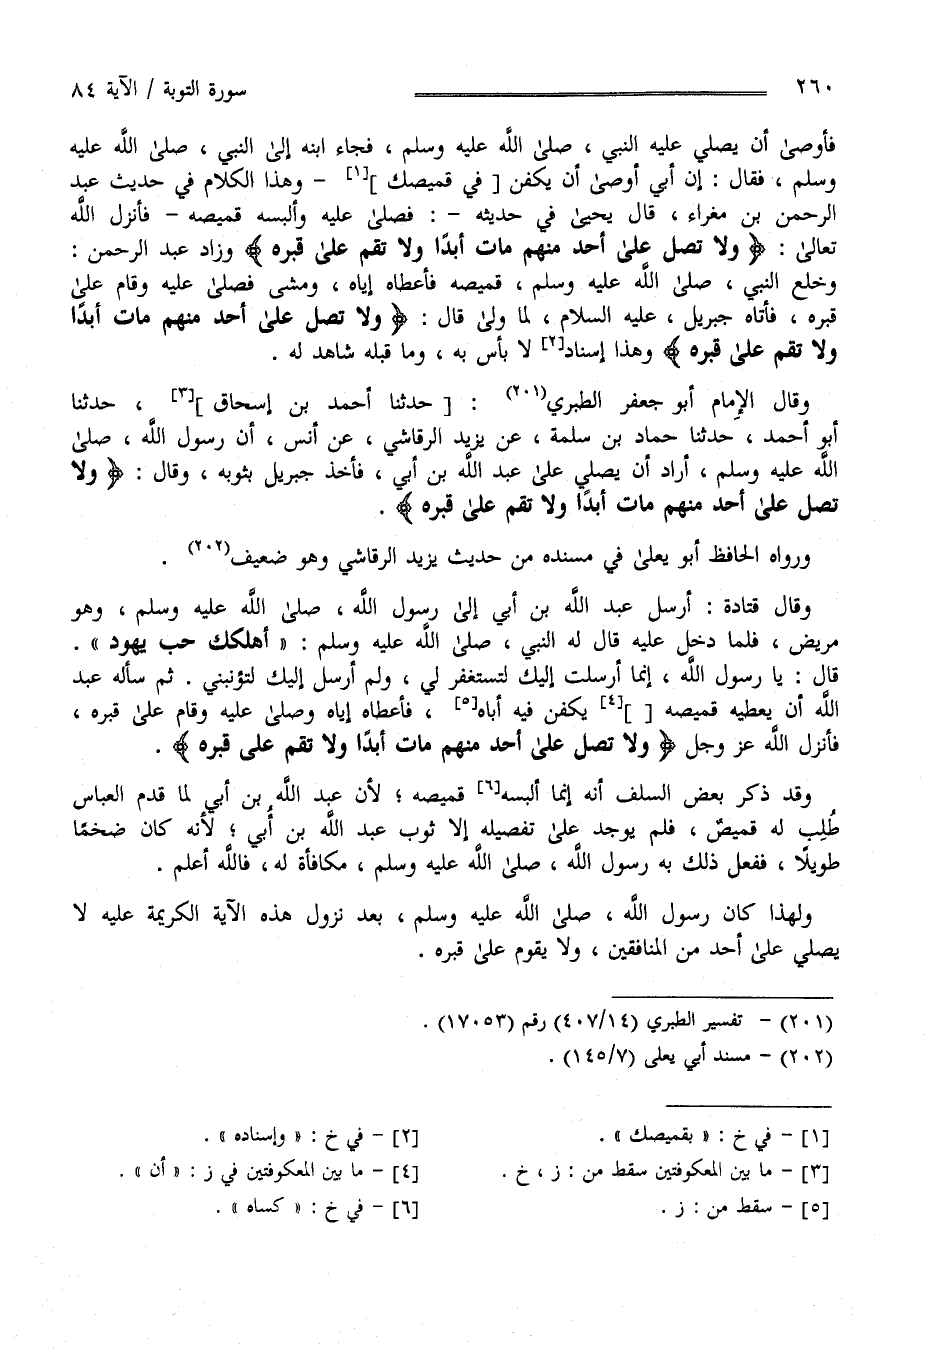 ٢٦٠ سورة التوبة / الآية ٨٤
فأوصىٰ أن يصلي عليه النبي ، صلىٰ اللَّه عليه وسلم ، فجاء ابنه إلىٰ النبي ، صلىٰ اللَّه عليه
وسلم ، فقال : إن أبي أوصىٰ أن يكفن [ في قميصك ][١] - وهذا الكلام في حديث عبد
الرحمن بن مغراء ، قال يحيىٰ في حديثه - : فصلىٰ عليه وألبسه قميصه - فأنزل اللَّه
تعالىٰ : ﴿ ولا تصل علىٰ أحد منهم مات أبدًا ولا تقم علىٰ قبره ﴾ وزاد عبد الرحمن :
وخلع النبي ، صلىٰ اللَّه عليه وسلم ، قميصه فأعطاه إياه ، ومشى فصلىٰ عليه وقام علىٰ
قبره ، فأتاه جبريل ، عليه السلام ، لما ولىٰ قال : ﴿ ولا تصل علىٰ أحد منهم مات أبدًا
ولا تقم علىٰ قبره ﴾ وهذا إسناد[٢] لا بأس به ، وما قبله شاهد له .
وقال الإمام أبو جعفر الطبري(٢٠١) : [ حدثنا أحمد بن إسحاق ][٣] ، حدثنا
أبو أحمد ، حدثنا حماد بن سلمة ، عن يزيد الرقاشي ، عن أنس ، أن رسول اللَّه ، صلىٰ
اللَّه عليه وسلم ، أراد أن يصلي علىٰ عبد اللَّه بن أبي ، فأخذ جبريل بثوبه ، وقال : ﴿ ولا
تصل علىٰ أحد منهم مات أبدًا ولا تقم علىٰ قبره ﴾ .
ورواه الحافظ أبو يعلىٰ في مسنده من حديث يزيد الرقاشي وهو ضعيف(٢٠٢) .
وقال قتادة : أرسل عبد اللَّه بن أبي إلىٰ رسول اللَّه ، صلىٰ اللَّه عليه وسلم ، وهو
مريض ، فلما دخل عليه قال له النبي ، صلىٰ اللَّه عليه وسلم : « أهلكك حب يهود » .
قال : يا رسول اللَّه ، إنما أرسلت إليك لتستغفر لي ، ولم أرسل إليك لتؤنبني . ثم سأله عبد
اللَّه أن يعطيه قميصه [ ][٤] يكفن فيه أباه[٥] ، فأعطاه إياه وصلىٰ عليه وقام علىٰ قبره ،
فأنزل اللَّه عز وجل ﴿ ولا تصل علىٰ أحد منهم مات أبدًا ولا تقم على قبره ﴾ .
وقد ذكر بعض السلف أنه إنما ألبسه[٦] قميصه ؛ لأن عبد اللَّه بن أبي لما قدم العباس
طُلِب له قميصٌ ، فلم يوجد علىٰ تفصيله إلا ثوب عبد اللَّه بن أُبي ؛ لأنه كان ضخمًا
طويلًا ، ففعل ذلك به رسول اللَّه ، صلىٰ اللَّه عليه وسلم ، مكافأة له ، فاللَّه أعلم .
ولهذا كان رسول اللَّه ، صلىٰ اللَّه عليه وسلم ، بعد نزول هذه الآية الكريمة عليه لا
يصلي علىٰ أحد من المنافقين ، ولا يقوم علىٰ قبره .
(٢٠١) - تفسير الطبري (٤٠٧/١٤) رقم (١٧٠٥٣) .
(٢٠٢) - مسند أبي يعلى (١٤٥/٧) .
[١] - في خ : « بقميصك » . [٢] - في خ : « وإسناده » .
[٣] - ما بين المعكوفتين سقط من : ز ، خ . [٤] - ما بين المعكوفتين في ز : « أن » .
[٥] - سقط من : ز . [٦] - في خ : « كساه » .